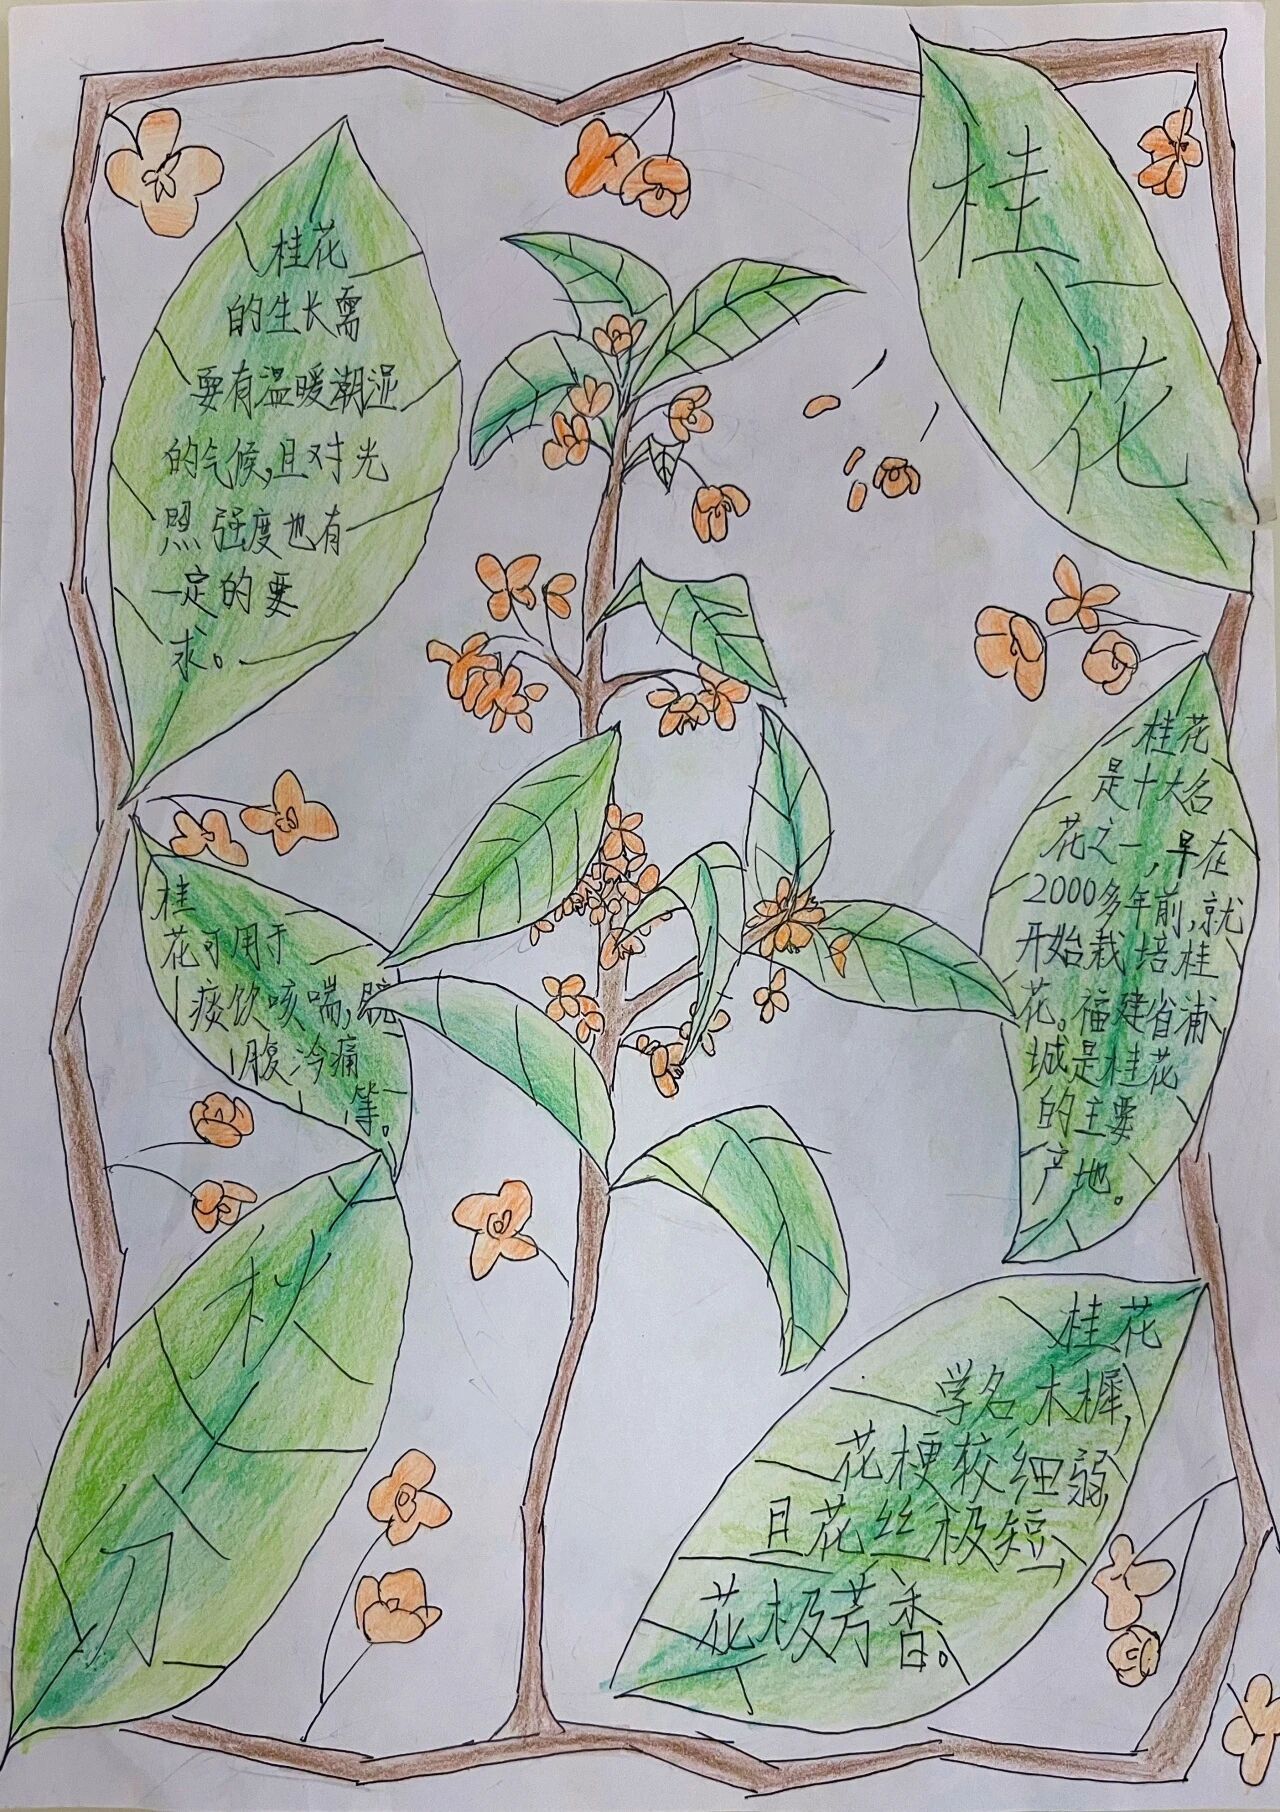 桂花
桂花
的生长需
要有温暖潮湿
的气候,且对光
照强度也有
一定的要
求。
桂花
是十大名
花之一,早在
2000多年前,就
开始栽培桂
花。福建省浦
城是桂花
的主要
产地。
桂
花可用于
痰饮咳喘,脘
腹冷痛
等。
秋
分
桂花
学名木樨,
花梗较细弱,
且花丝极短,
花极芳香。